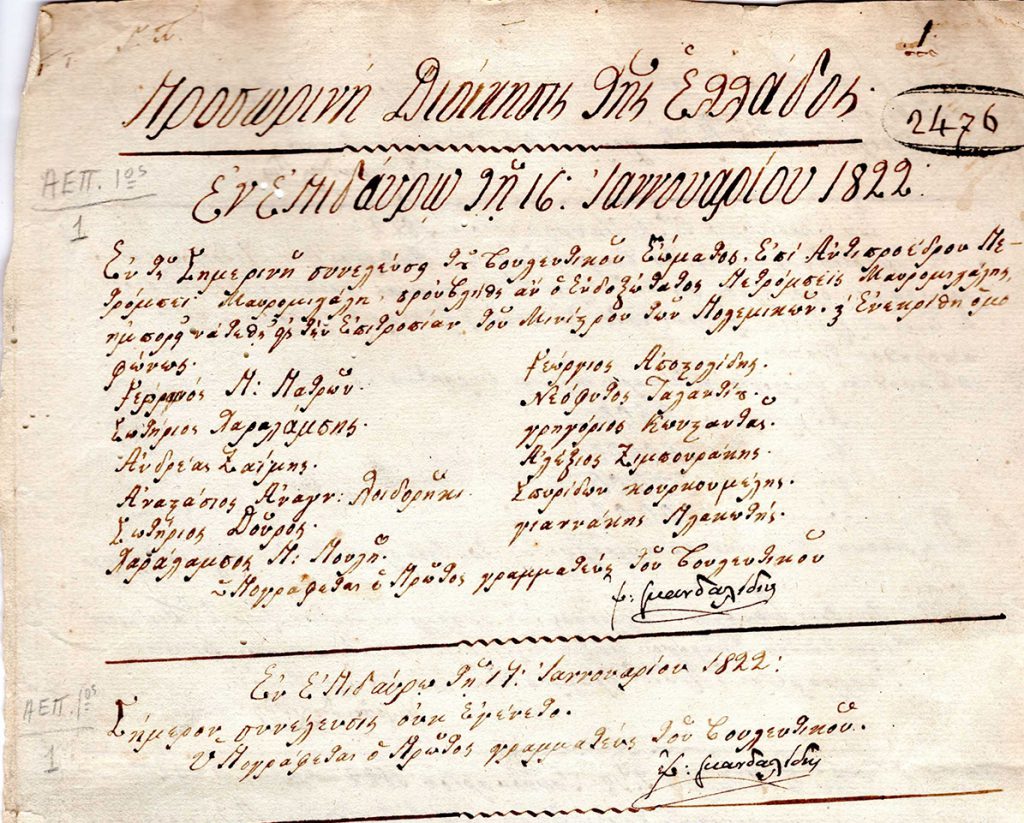 1
Προσωρινή Διοίκησις τῆς Ἑλλάδος.
2476
ΑΕΠ. 1ος
1
Ἐν Ἐπιδαύρῳ τῇ 16: Ἰαννουαρίου 1822:
Ἐν τῇ Σημερινῇ συνελεύσῃ τοῦ Βουλευτικοῦ Σώματος, Ἐπὶ Ἀντιπροέδρου Πε-
τρόμπεϊ Μαυρομιχάλη, προὐβλήθη ἂν ὁ Ἐνδοξώτατος Πετρόμπεϊς Μαυρομιχάλης,
ἠμπορῇ νὰ τεθῇ εἰς τὴν Ἐπιτροπίαν τοῦ Μινίστρου τῶν Πολεμικῶν. καὶ Ἐνεκρίθη ὁμο
φώνως.
Γερμανός Π: Πατρῶν.
Σωτήριος Χαραλάμπης.
Ἀνδρέας Ζαΐμης.
Ἀναστάσιος Ἀναγν: Λοιδορῆκι.
Σωτήριος Δοῦρος.
Χαράλαμπος Π: Πουλῆ.
Γεώργιος Ἀποστολίδης.
Νεόφυτος Ταλαντίου.
γρηγόριος Κωνσταντᾶς.
Ἀλέξιος Ζιμπουράκης.
Σπυρίδων κουρκουμέλης.
γιαννάκης Πλακωτής.
Ὑπογράφεται ὁ Πρῶτος γραμματεύς τοῦ Βουλευτικοῦ
σκανδαλίδης
Ἐν Ἐπιδαύρῳ τῇ 17: Ἰαννουαρίου 1822:
ΑΕΠ. 1ος
1
Σήμερον συνέλευσις οὐκ ἐγένετο.
Ὑπογράφεται ὁ Πρῶτος γραμματεύς τοῦ Βουλευτικοῦ.
σκανδαλίδης